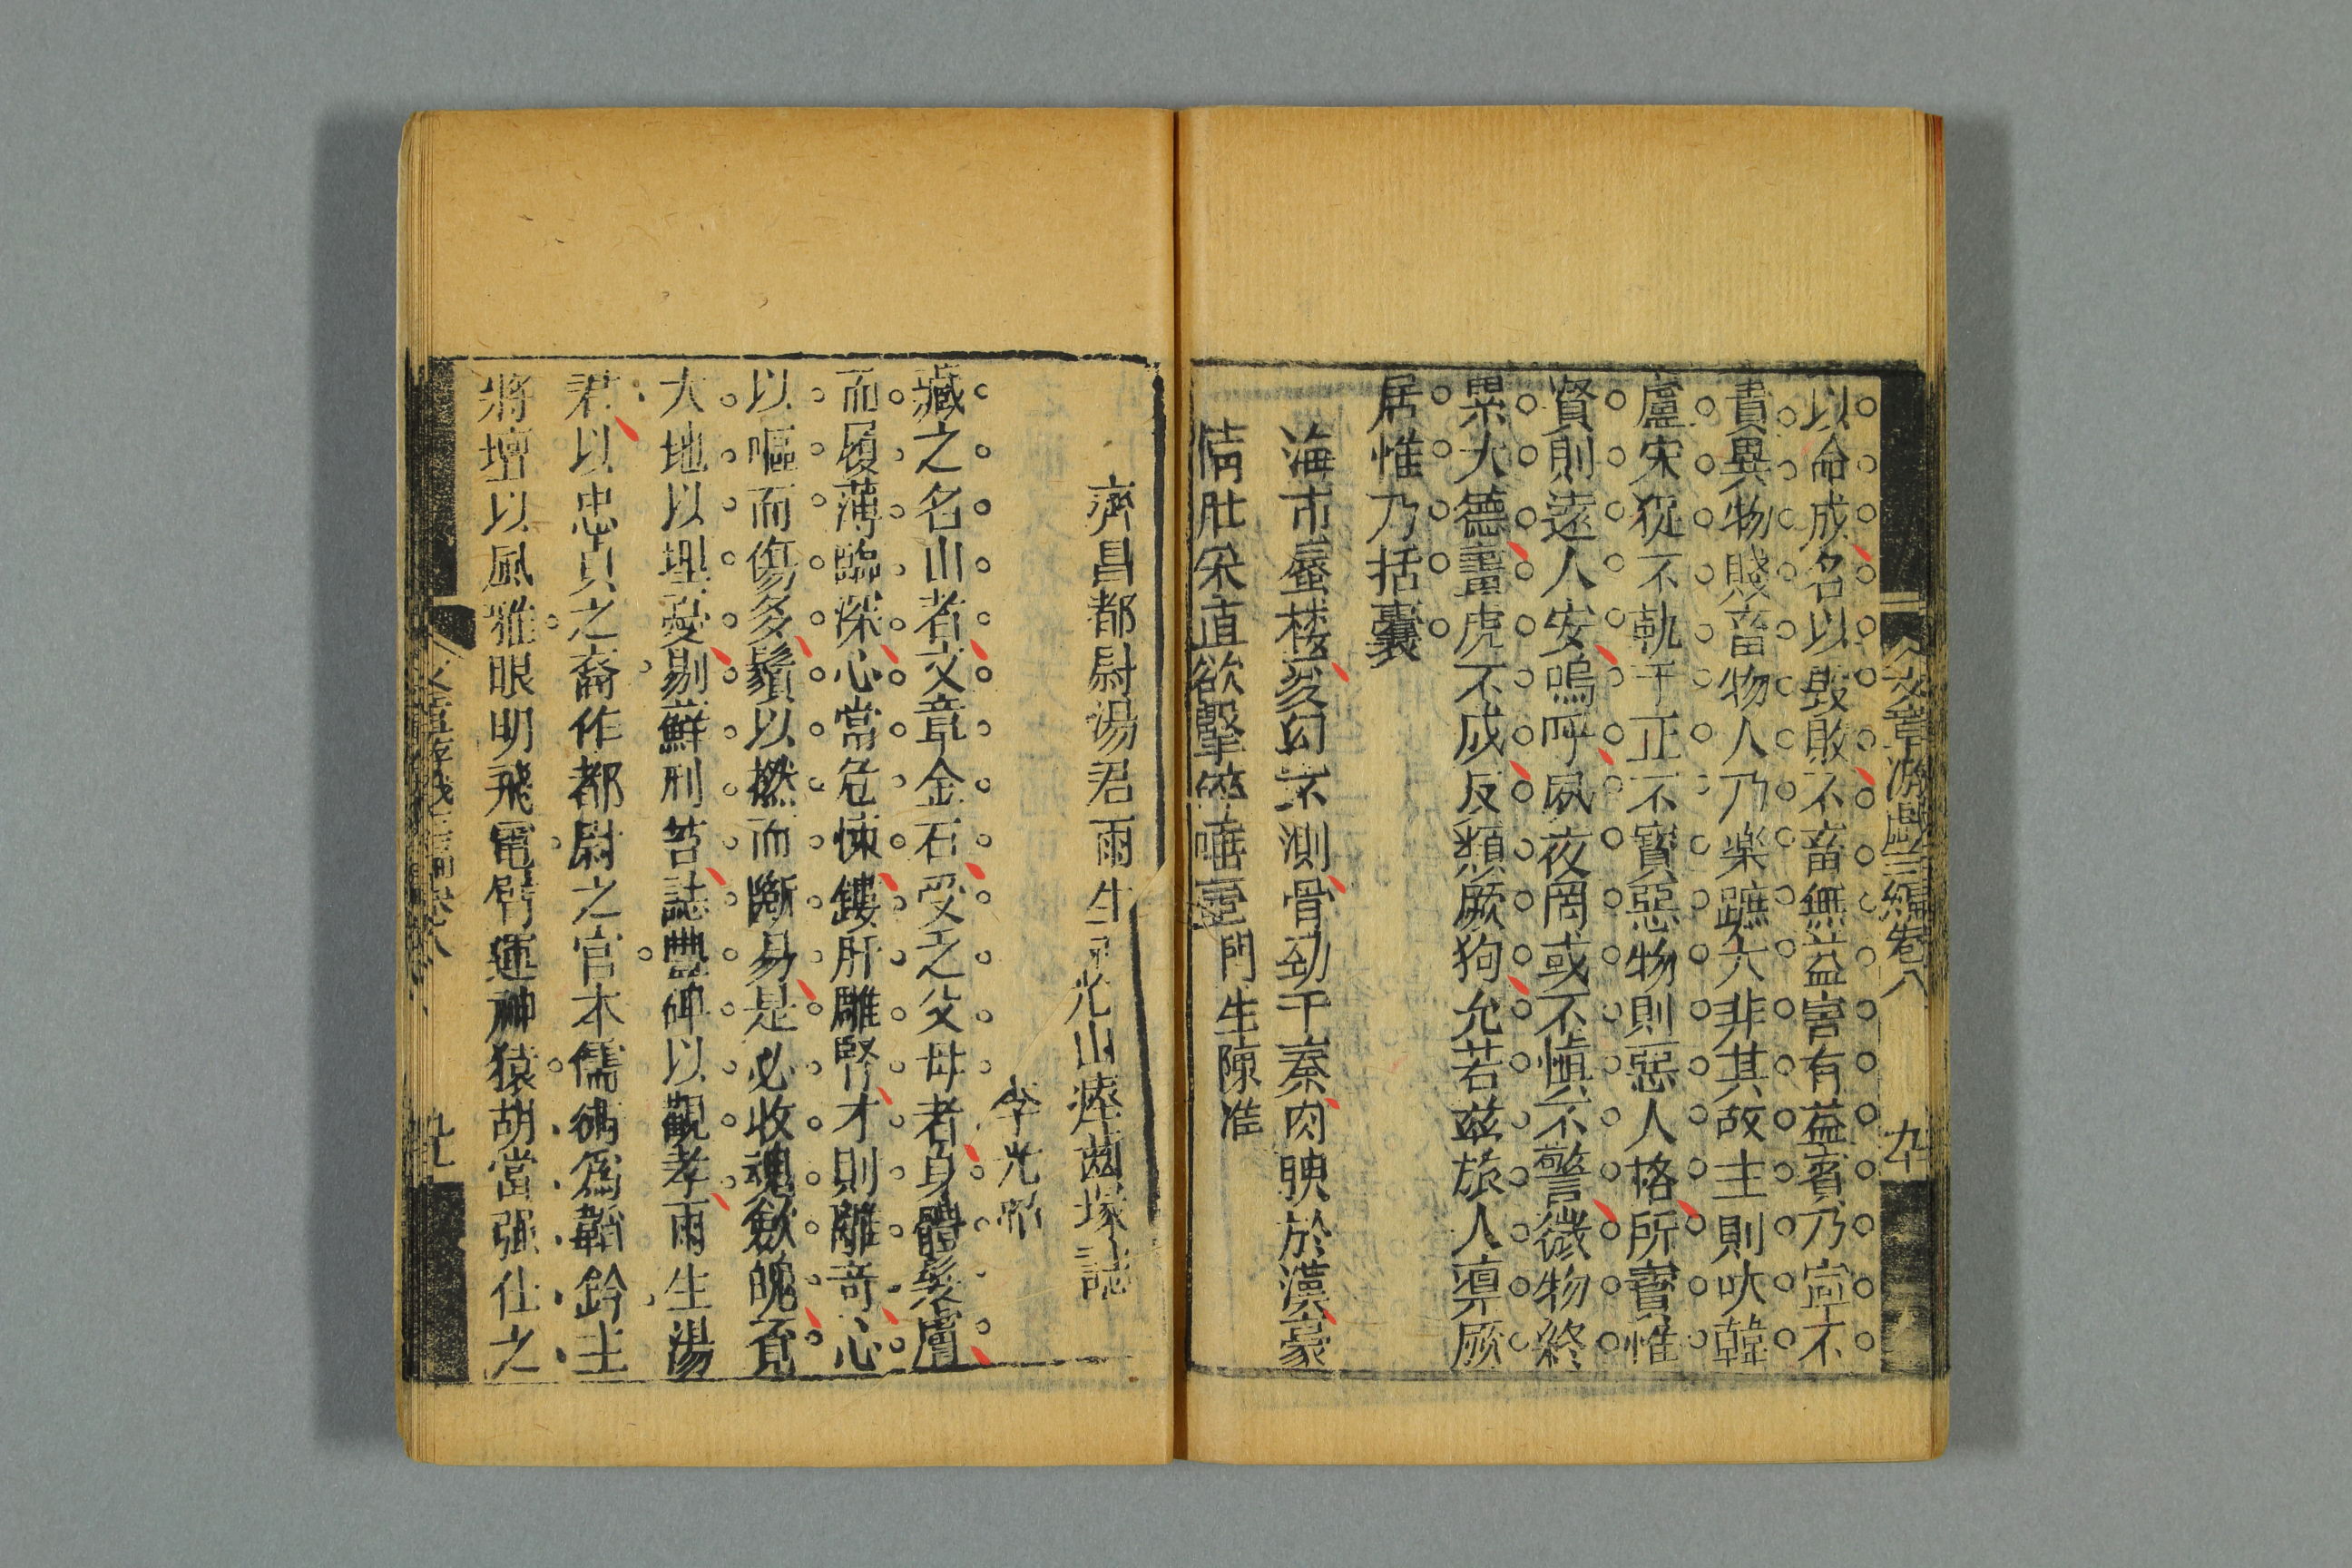 文章游戲三編卷八 九十
以命成名以毁敗不畜無益害有益賓乃寍不
貴異物賤畜物人乃楽蹠六非其故主則吠韓
盧宋狔不軌于正不寳惡物則惡人格所寳惟
賢則遠人安嗚呼夙夜罔或不慎不警微物終
累大德畫虎不成反類厥狗允若兹旅人凛厥
居惟乃括囊
海市蜃楼变幻不測骨劲于秦肉腴於漢豪
情壮采直欲擊碎唾壺門生陳准
齊昌都尉湯君雨生光山瘞齒塚誌
李光昭
藏之名山者文章金石受之父母者身體髮膚
而履薄臨深心當危悚鏤肝雕腎才則離奇心
以嘔而傷多鬚以撚而斷易是必收魂斂魄覓
大地以埋憂剔蘚刑苔誌豐碑以觀孝雨生湯
君以忠貞之裔作都尉之官本儒術爲韜鈐主
將壇以風雅眼明飛電臂運神猿胡當強仕之